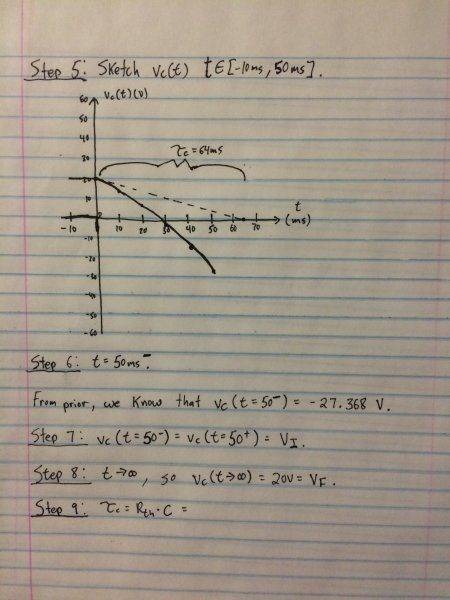 Step 5: Sketch Vc(t) t∈[-10ms, 50ms].
60 Vc(t)(v)
50
40
30
τc = 64ms
20
10
t
-10 10 20 30 40 50 60 70 (ms)
-10
-20
-30
-40
-50
-60
Step 6: t = 50ms⁻.
From prior, we know that Vc(t=50⁻) = -27.368 V.
Step 7: Vc(t=50⁻) = Vc(t=50⁺) = V_I.
Step 8: t→∞, so Vc(t→∞) = 20V = V_F.
Step 9: τc = R_th · C =